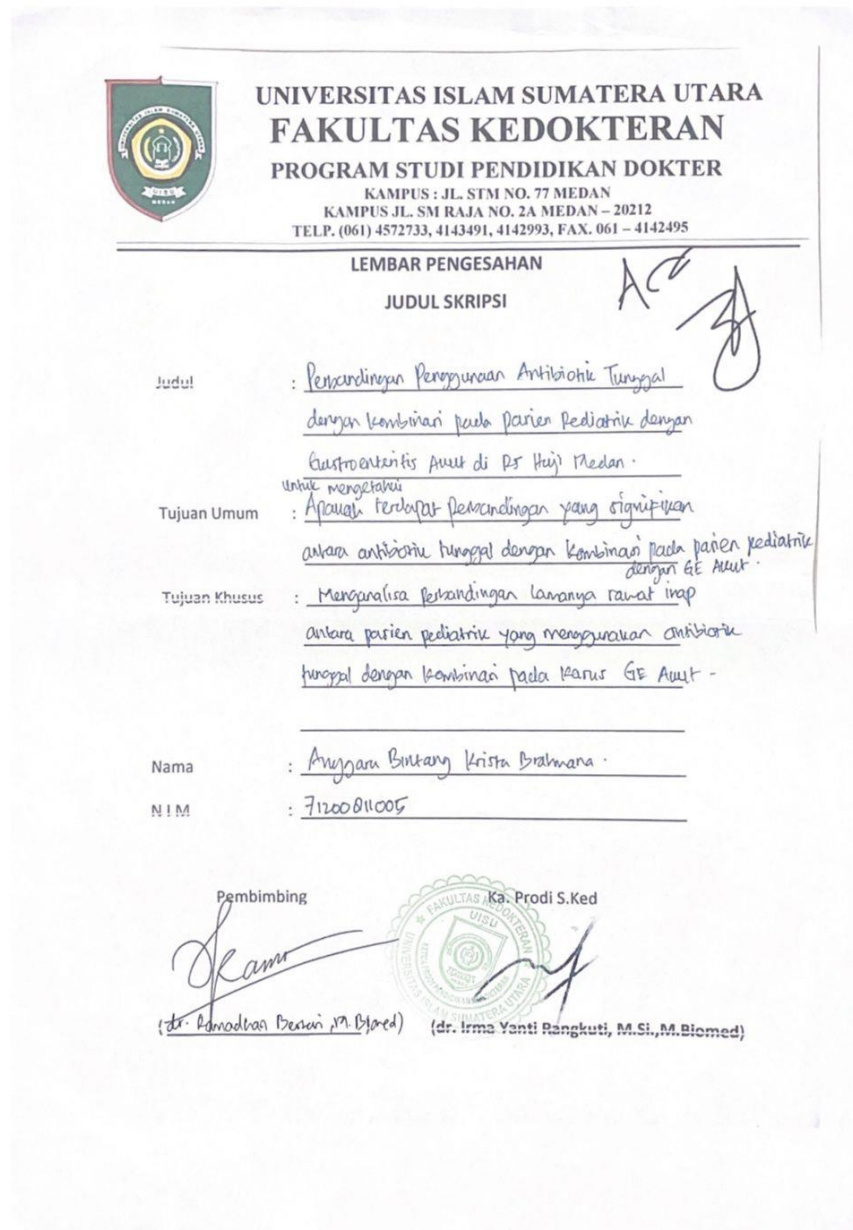 UNIVERSITAS ISLAM SUMATERA UTARA
FAKULTAS KEDOKTERAN
PROGRAM STUDI PENDIDIKAN DOKTER
KAMPUS : JL. STM NO. 77 MEDAN
KAMPUS JL. SM RAJA NO. 2A MEDAN – 20212
TELP. (061) 4572733, 4143491, 4142993, FAX. 061 – 4142495
LEMBAR PENGESAHAN
JUDUL SKRIPSI
ACC
Judul : Perbandingan Penggunaan Antibiotik Tunggal
dengan kombinasi pada pasien Pediatrik dengan
Gastroenteritis Akut di RS Haji Medan.
untuk mengetahui
Tujuan Umum : Apakah terdapat perbandingan yang signifikan
antara antibiotik tunggal dengan kombinasi pada pasien pediatrik
dengan GE Akut.
Tujuan Khusus : Menganalisa Perbandingan lamanya rawat inap
antara pasien pediatrik yang menggunakan antibiotik
tunggal dengan kombinasi pada kasus GE Akut -
Nama : Anggara Bintang Krista Brahmana.
NIM : 71200811005
Pembimbing Ka. Prodi S.Ked
FAKULTAS KEDOKTERAN
UISU
UNIVERSITAS ISLAM SUMATERA UTARA
(dr. Ramadhan Bestari, M. Biomed) (dr. Irma Yanti Rangkuti, M.Si.,M.Biomed)